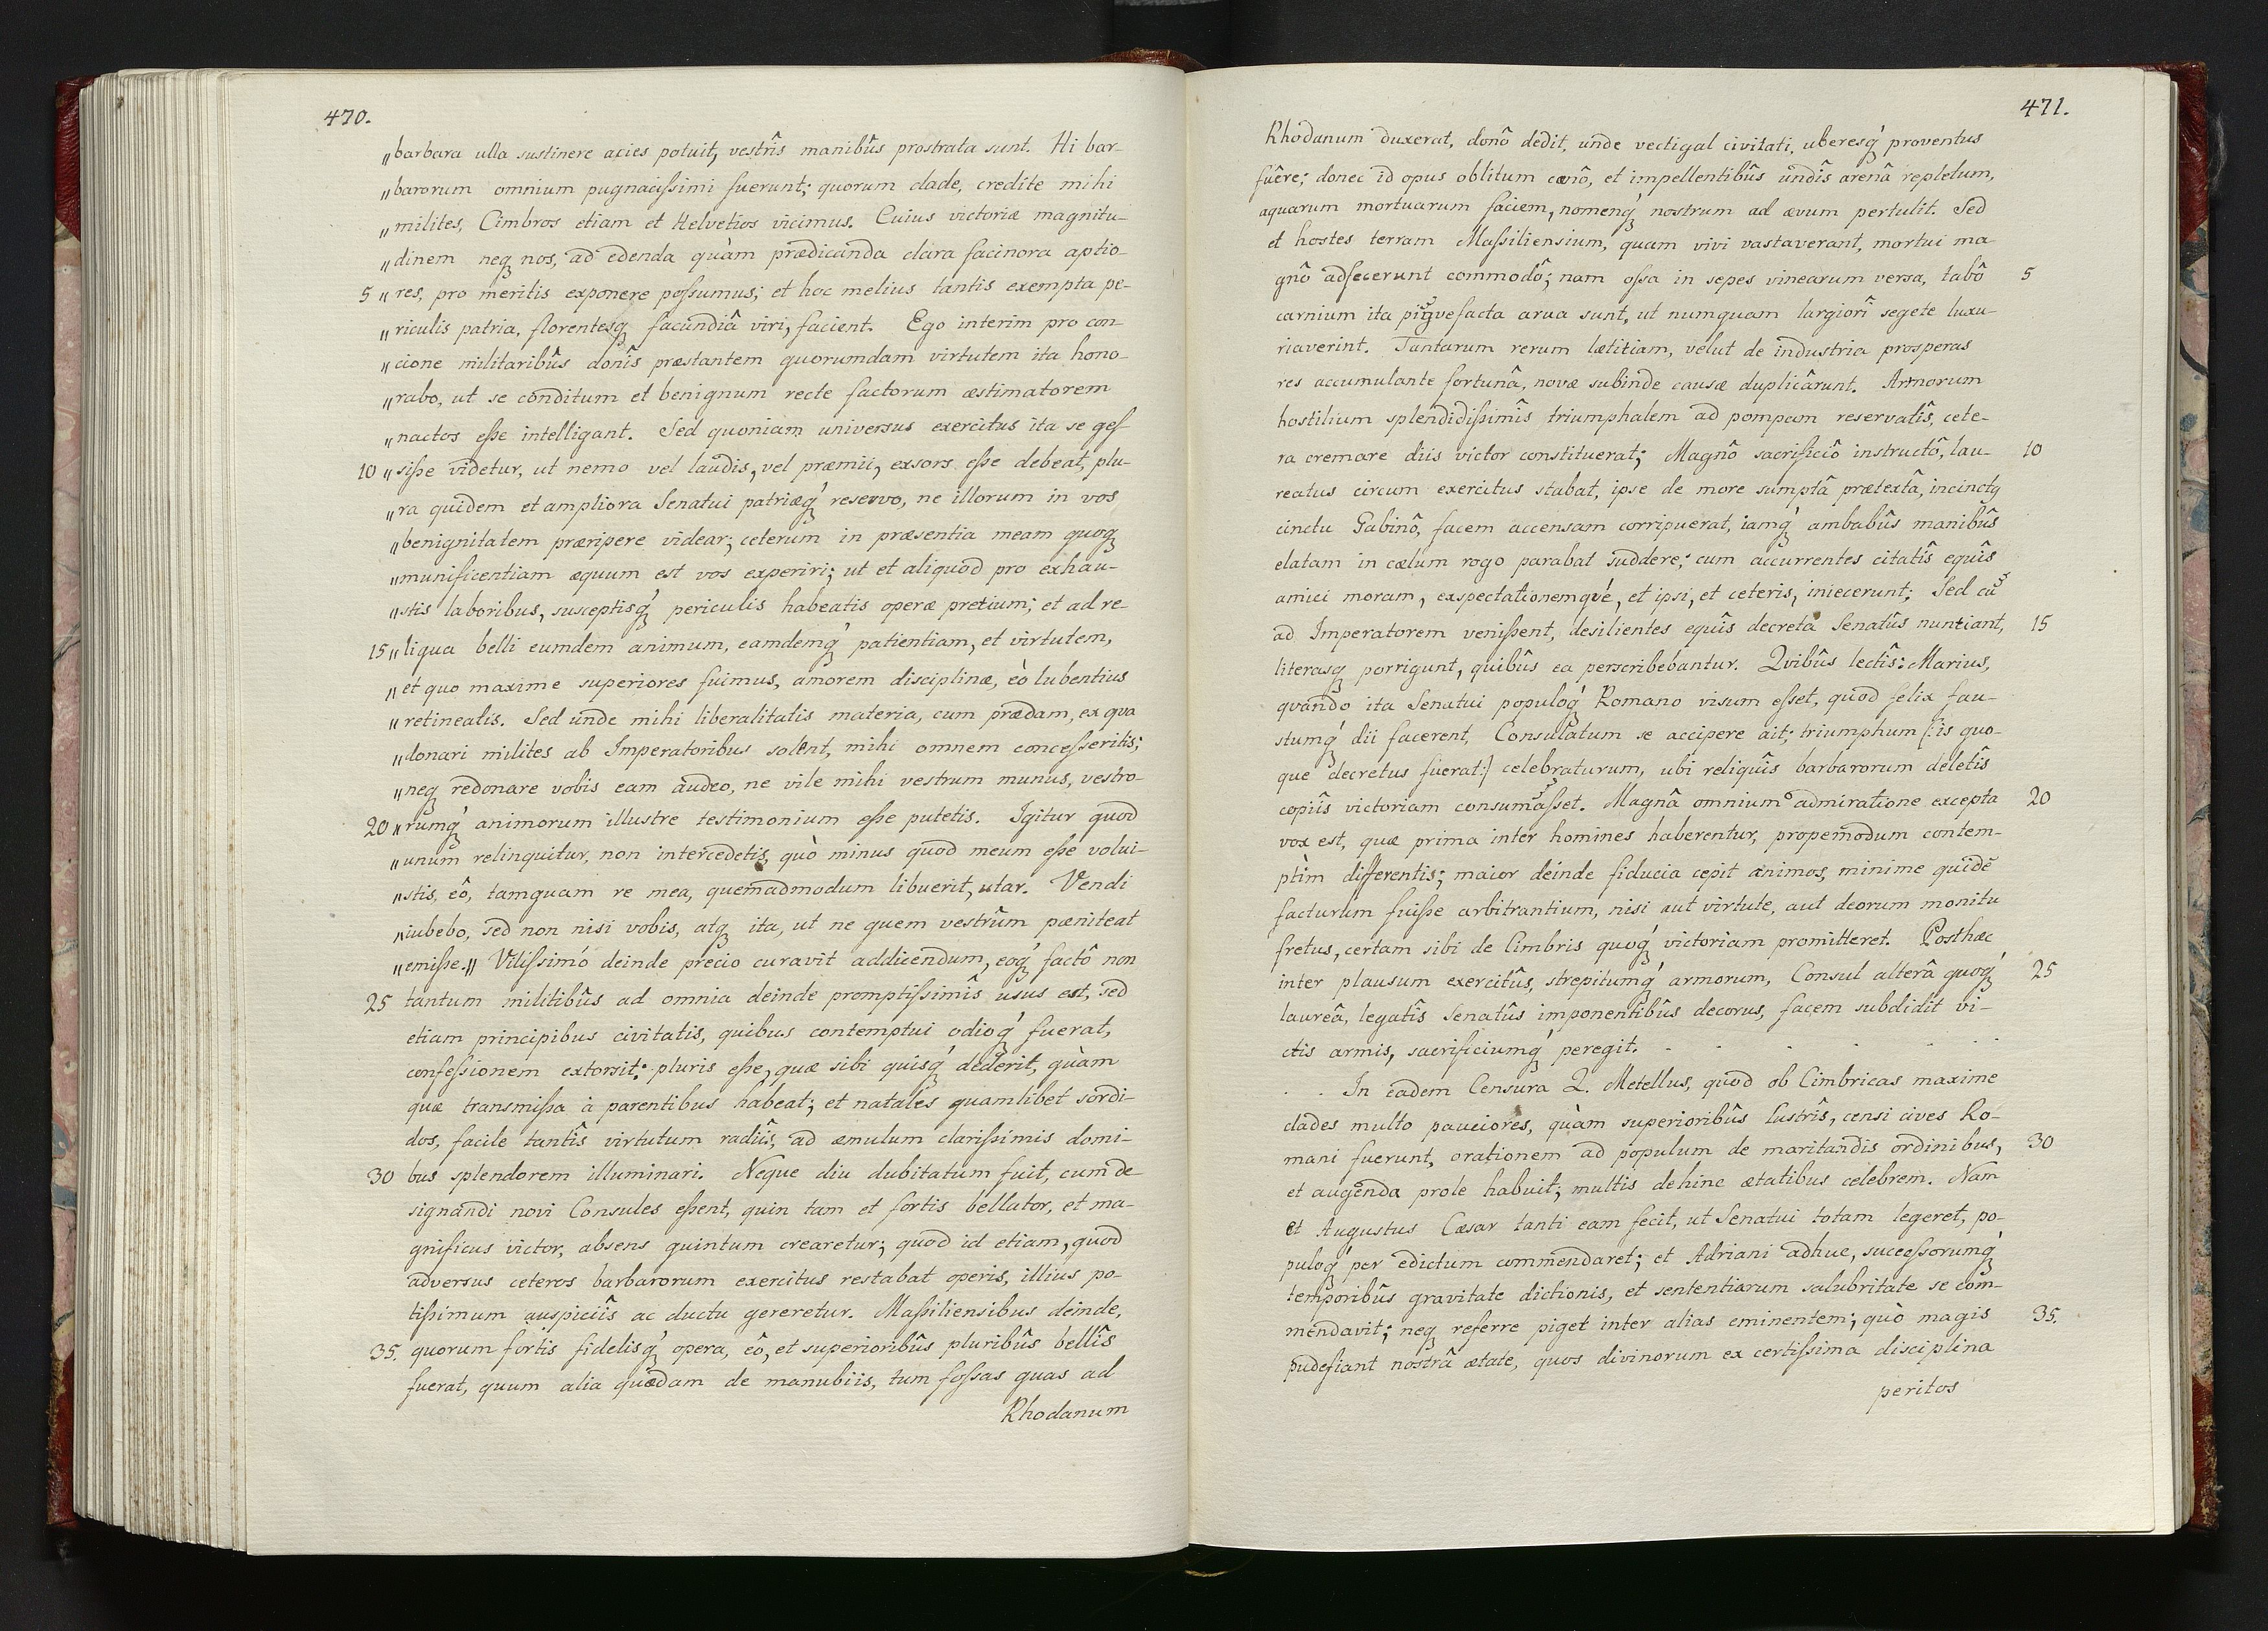 470.
„barbara ulla sustinere acies potuit, vestrîs manibûs prostrata sunt. Hi bar-
„barorum omnium pugnacißimi fuerunt; quorum clade, credite mihi
„milites, Cimbros etiam et Helvetios vicimus. Cuius victoriæ magnitu-
„dinem neq nos, ad edenda quàm prædicanda clara facinora aptio-
5 „res, pro meritis exponere poßumus; et hoc melius tantis exempta pe-
„riculis patria, florentesq facundiâ viri, facient. Ego interim pro con-
„cione militaribûs donîs præstantem quorumdam virtutem ita hono-
„rabo, ut se conditum et benignum recte factorum æstimatorem
„nactos eße intelligant. Sed quoniam universus exercitus ita se geſ
10 „siße videtur, ut nemo vel laudis, vel præmii, exsors eße debeat, plu-
„ra quidem et ampliora Senatui patriæq́ reservo, ne illorum in vos
„benignitatem præripere videar; ceterum in præsentia meam quoq
„munificentiam æquum est vos experiri; ut et aliquod pro exhau-
„stis laboribus, susceptisq́ periculis habeatis operæ pretium; et ad re-
15 „liqua belli eumdem animum, eamdemq́ patientiam, et virtutem,
„et quo maxime superiores fuimus, amorem disciplinæ, eò lubentius
„retineatis. Sed unde mihi liberalitatis materia, cum prædam, ex qva
„donari milites ab Imperatoribus solent, mihi omnem conceßeritis;
„neq redonare vobis eam audeo, ne vile mihi vestrum munus, vestro-
20 „rumq́ animorum illustre testimonium eße putetis. Igitur quod
„unum relinquitur, non intercedetis, quò minus quod meum eße volui-
„stis, eô, tamquam re mea, quemadmodum libuerit, utar. Vendi
„iubebo, sed non nisi vobis, atq ita, ut ne quem vestrûm pæniteat
„emiße.„ Vilißimó deinde precio curavit addicendum, eoq́ factô non
25 tantum militibûs ad omnia deinde promptißimîs usus est, sed
etiam principibus civitatis, quibus contemptui odioq́ fuerat,
confeßionem extorsit: pluris eße, quæ sibi quisq́ dederit, quàm
quæ transmißa à parentibus habeat; et natales quamlibet sordi-
dos, facile tantîs virtutum radiîs, ad æmulum clarißimis domi-
30 bus splendorem illuminari. Neque diu dubitatum fuit, cum de
signandi novi Consules eßent, quin tam et fortis bellator, et ma-
gnificus victor, absens quintum crearetur; quod id etiam, quod
adversus ceteros barbarorum exercitus restabat operis, illius po-
tißimum auspiciîs ac ductu gereretur. Maßiliensibus deinde,
35. quorum fortis fidelisq́ opera, eô, et superioribûs pluribûs bellîs
fuerat, quum alia quædam de manubiis, tum foßas quas ad
Rhodanum
471.
Rhodanum duxerat, donô dedit, unde vectigal civitati, uberesq́ proventus
fuêre; donec id opus oblitum cænô, et impellentibûs undîs arenâ repletum,
aquarum mortuarum faciem, nomenq́ nostrum ad ævum pertulit. Sed
et hostes terram Maßiliensium, quam vivi vastaverant, mortui ma-
gnô adfecerunt commodô; nam oßa in sepes vinearum versa, tabô 5
carnium ita pigvefacta arua sunt, ut numquam largiorî segete luxu-
riaverint. Tantarum rerum lætitiam, velut de industria prosperas
res accumulante fortunâ, novæ subinde causæ duplicârunt. Armorum
hostilium splendidißimîs triumphalem ad pompam reservatîs, cete-
ra cremare diis victor constituerat; Magnô sacrificiô instructô, lau- 10
reatus circum exercitus stabat, ipse de more sumptâ prætextâ, incinctq
cinctu Gabinô, facem accensam corripuerat, iamq́ ambabûs manibûs
elatam in cælum rogo parabat suddere; cum accurrentes citatîs equîs
amici moram, exspectationemqué, et ipsi, et ceteris, iniecerunt; Sed cu᷃
ad Imperatorem venißent, desilientes equîs decreta Senatûs nuntiant, 15
literasq porrigunt, quibûs ea perscribebantur. Qvibûs lectîs: Marius,
qvando ita Senatui populoq́ Romano visum eßet, quod felix fau-
stumq́ dii facerent, Consulatum se accipere ait; triumphum [:is quo-
que decretus fuerat:] celebraturum, ubi reliquîs barbarorum deletîs
copiîs victoriam consumaßet. Magnâ omnium admiratione excepta 20
vox est, quæ prima inter homines haberentur, propemodum contem-
ptìm differentis; maior deinde fiducia cepit animos, minime quidē
facturum fuiße arbitrantium, nisi aut virtute, aut deorum monitu
fretus, certam sibi de Cimbris quoq́ victoriam promitteret. Posthæc
inter plausum exercitûs, strepitumq́ armorum, Consul alterâ quoq́ 25
laureâ, legatîs Senatûs imponentibûs decorus, facem subdidit vi-
ctis armis, sacrificiumq́ peregit. - - - - - -
. . In eadem Censura Q. Metellus, quod ob Cimbricas maxime
clades multo pauciores, quàm superioribûs lustrîs, censi cives Ro-
mani fuerunt, orationem ad populum de maritandis ordinibus, 30
et augenda prole habuit; multis dehinc ætatibus celebrem. Nam
et Augustus Cæsar tanti eam fecit, ut Senatui totam legeret, po-
puloq́ per edictum commendaret; et Adriani adhuc, succeßorumq́
temporibûs gravitate dictionis, et sententiarum salubritate se com-
mendavit; neq referre piget inter alias eminentem; quò magis 35.
pudefiant nostrâ ætate, quos divinorum ex certißima disciplina
peritos